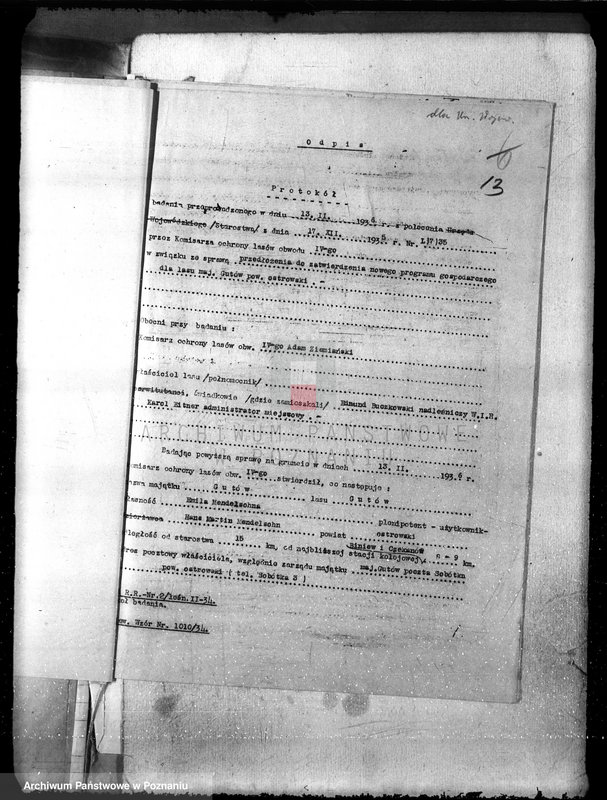 dla Kn.
6
13
Odpis
Protokół
badania przeprowadzonego w dniu 13.II. 1936 r. z polecenia Urzędu
Wojewódzkiego /Starostwa/ z dnia 17.XII. 1935 r. Nr. L|7|35
przez Komisarza ochrony lasów obwodu IV-go
w związku ze sprawą przedłożenia do zatwierdzenia nowego programu gospodarczego
dla lasu maj. Gutów pow. ostrowski . -
Obecni przy badaniu :
Komisarz ochrony lasów obw. IV-go Adam Ziemiański
właściciel lasu /pełnomocnik/
serwitutanci, świadkowie /gdzie zamieszkali/ Edmund Buczkowski nadleśniczy W.I.R.
Karol Eitner administrator miejscowy . -
Badając powyższą sprawę na gruncie w dniach 13. II. 1936 r.
Komisarz ochrony lasów obw. IV-go stwierdził, co następuje :
azwa majątku Gutów lasu Gutów
łasność Emila Mendelsohna plenipotent - użytkownik-
dzierżawca Hans Martin Mendelsohn powiat ostrowski
ległość od starostwa 15 km, od najbliższej stacji kolejowej Biniew i Czekanów 8 - 9 km.
res pocztowy właściciela, względnie zarządu majątku maj.Gutów poczta Sobótka
pow. ostrowski ( tel. Sobótka 3 )
R.R.-Nr.2/leśn.II-34.
ół badania.
ow. Wzór Nr. 1010/34.
ARCHIWUM PAŃSTWOWE
W POZNANIU
Archiwum Państwowe w Poznaniu